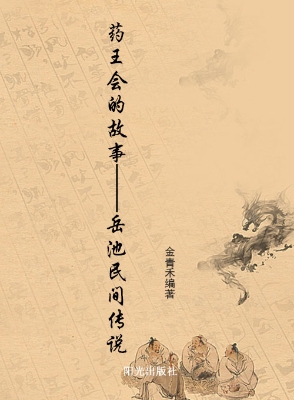 药王会的故事——岳池民间传说
金青禾编著
阳光出版社